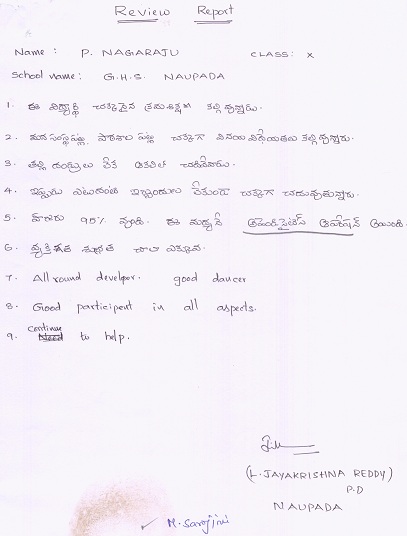 Review Report
Name : P. NAGARAJU CLASS: X
School name: G.H.S. NAUPADA
1. ఈ విద్యార్థి చక్కనైన క్రమశిక్షణ కల్గి వున్నాడు.
2. మన సంస్థ పట్ల, పాఠశాల పట్ల చక్కగా వినయ విధేయతలు కల్గి వున్నాడు.
3. తల్లి దండ్రులు లేక
4. ఇప్పుడు ఎటువంటి ఇబ్బందులు లేకుండా చక్కగా చదువుతున్నాడు.
5. హాజరు 95% వుంది. ఈ మధ్యనే ఆపరేషన్ అయింది.
6. వ్యక్తిగత శుభ్రత చాలా ఎక్కువ.
7. All round develpor. good dancer
8. Good participent in all aspects.
9. continue to help.
(L. JAYAKRISHNA REDDY)
P.D
NAUPADA
M. Sarojini